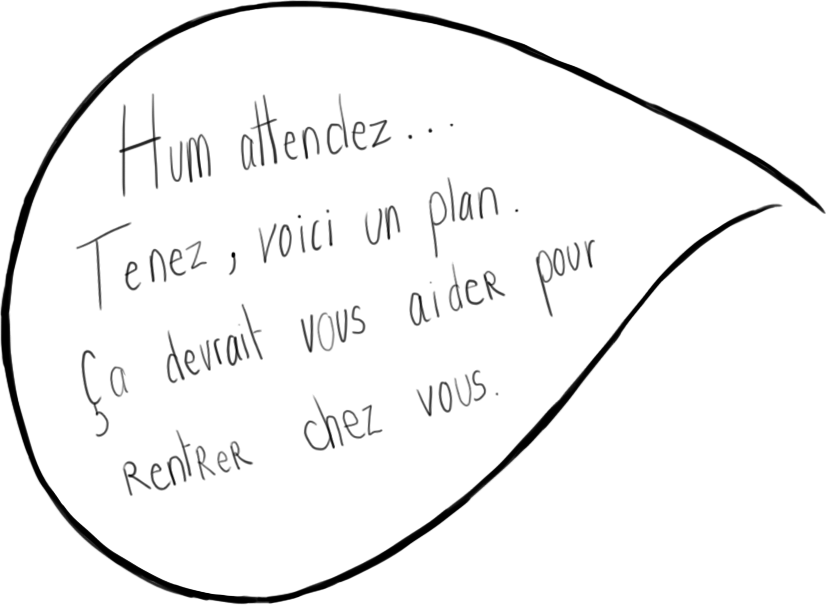 Hum attendez...
Tenez, voici un plan.
Ça devrait vous aider pour
rentrer chez vous.